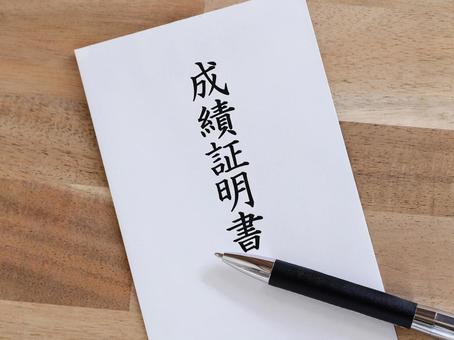 成績証明書